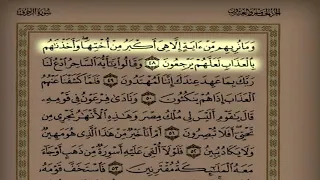 سورة الزخرف
وَمَا نُرِيهِم مِّنْ ءَايَةٍ إِلَّا هِىَ أَكْبَرُ مِنْ أُخْتِهَا وَأَخَذْنَٰهُم
بِالْعَذَابِ لَعَلَّهُمْ يَرْجِعُونَ ٤٨ وَقَالُوا يَٰٓأَيُّهَ السَّاحِرُ ادْعُ لَنَا
رَبَّكَ بِمَا عَهِدَ عِندَكَ إِنَّنَا لَمُهْتَدُونَ ٤٩ فَلَمَّا كَشَفْنَا عَنْهُمُ
الْعَذَابَ إِذَا هُمْ يَنكُثُونَ ٥٠ وَنَادَىٰ فِرْعَوْنُ فِى قَوْمِهِ
قَالَ يَٰقَوْمِ أَلَيْسَ لِى مُلْكُ مِصْرَ وَهَٰذِهِ الْأَنْهَٰرُ تَجْرِى مِن
تَحْتِى أَفَلَا تُبْصِرُونَ ٥١ أَمْ أَنَا خَيْرٌ مِّنْ هَٰذَا الَّذِى هُوَ مَهِينٌ
وَلَا يَكَادُ يُبِينُ ٥٢ فَلَوْلَا أُلْقِىَ عَلَيْهِ أَسْوِرَةٌ مِّن ذَهَبٍ أَوْ جَاءَ
مَعَهُ الْمَلَٰٓئِكَةُ مُقْتَرِنِينَ ٥٣ فَاسْتَخَفَّ قَوْمَهُ